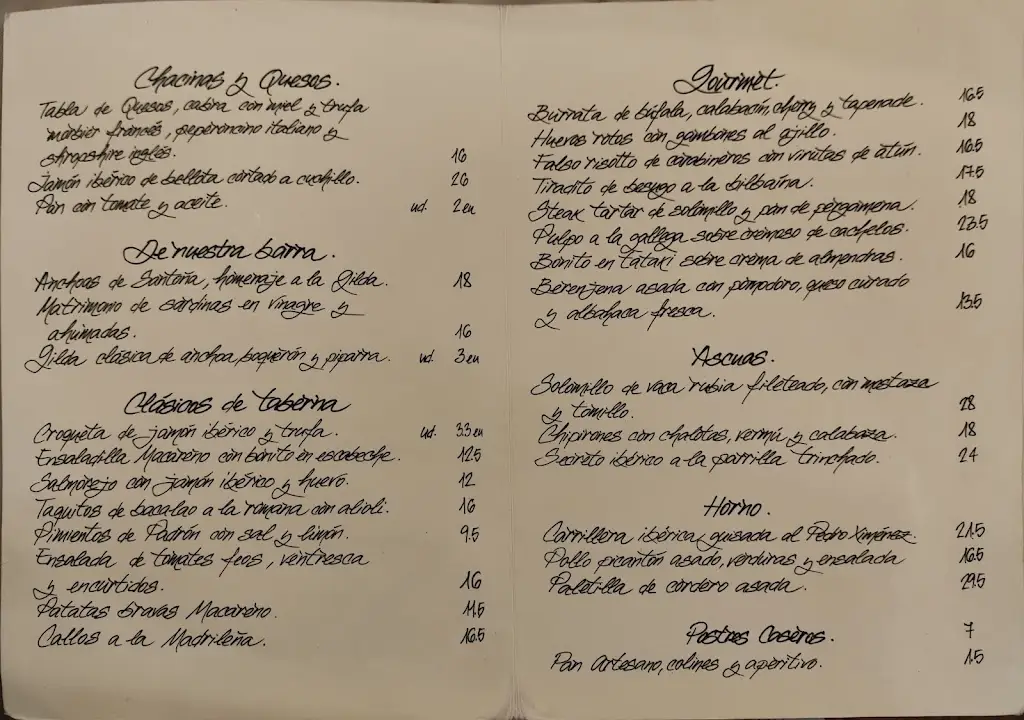 Chacinas y Quesos.
Tabla de Quesos, cabra con miel y trufa
morbier francés, peperoncino italiano y
shropshire inglés. 16
Jamón ibérico de bellota cortado a cuchillo. 26
Pan con tomate y aceite. ud. 2eu
De nuestra barra.
Anchoas de Santoña, homenaje a la Gilda. 18
Matrimonio de sardinas en vinagre y
ahumadas. 16
Gilda clásica de anchoa, boquerón y piparra. ud. 3eu
Clásicos de taberna
Croqueta de jamón ibérico y trufa. ud. 3.3 eu
Ensaladilla Macareno con bonito en escabeche. 12.5
Salmorejo con jamón ibérico y huevo. 12
Taquitos de bacalao a la romana con alioli. 16
Pimientos de Padrón con sal y limón. 9.5
Ensalada de tomates feos, ventresca
y encurtidos. 16
Patatas bravas Macareno. 11.5
Callos a la Madrileña. 16.5
Gourmet.
Burrata de búfala, calabacín, cherry y tapenade. 16.5
Huevos rotos con gambones al ajillo. 18
Falso risotto de carabineros con virutas de atún. 16.5
Tiradito de besugo a la bilbaína. 17.5
Steak tartar de solomillo y pan de pergamena. 18
Pulpo a la gallega sobre cremoso de cachelos. 23.5
Bonito en tataki sobre crema de almendras. 16
Berenjena asada con pomodoro, queso curado
y albahaca fresca. 13.5
Ascuas.
Solomillo de vaca rubia fileteado, con mostaza
y tomillo. 28
Chipirones con chalotas, vermú y calabaza. 18
Secreto ibérico a la parrilla trinchado. 24
Horno.
Carrillera ibérica guisada al Pedro Ximénez. 21.5
Pollo picantón asado, verduras y ensalada 16.5
Paletilla de cordero asada. 29.5
Postres Caseros. 7
Pan Artesano, colines y aperitivo. 1.5